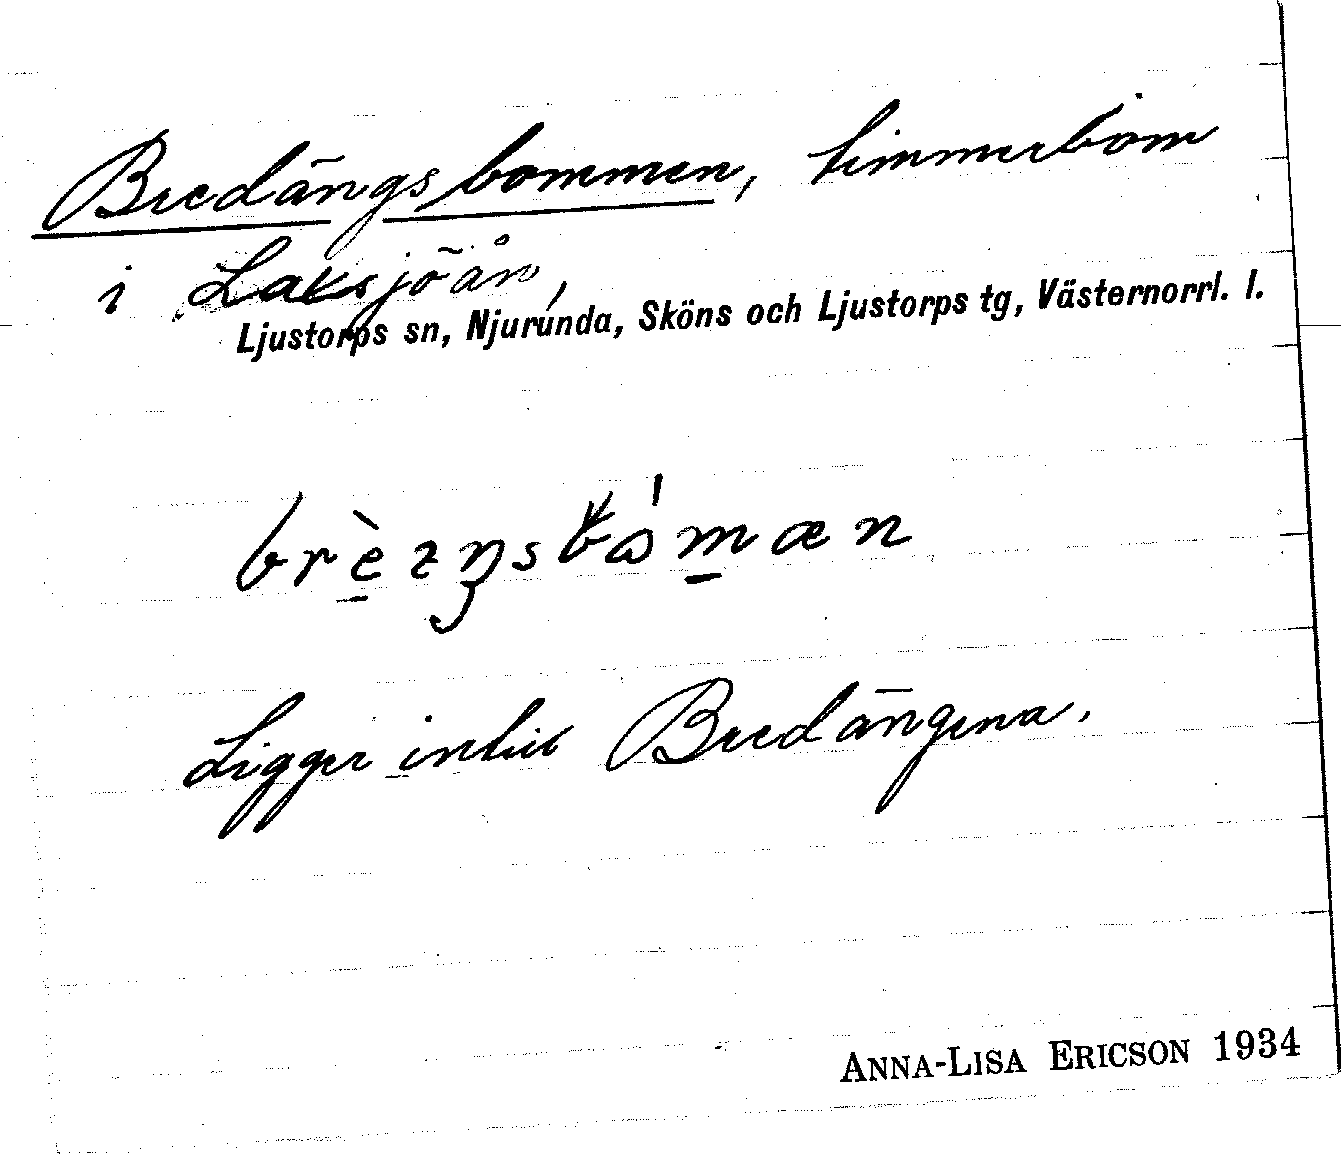 Bredängsbommen, timmerbom
i Laksjöån,
Ljustorps sn, Njurunda, Sköns och Ljustorps tg, Västernorrl. l.
Ligger intill Bredängena.
ANNA-LISA ERICSON 1934